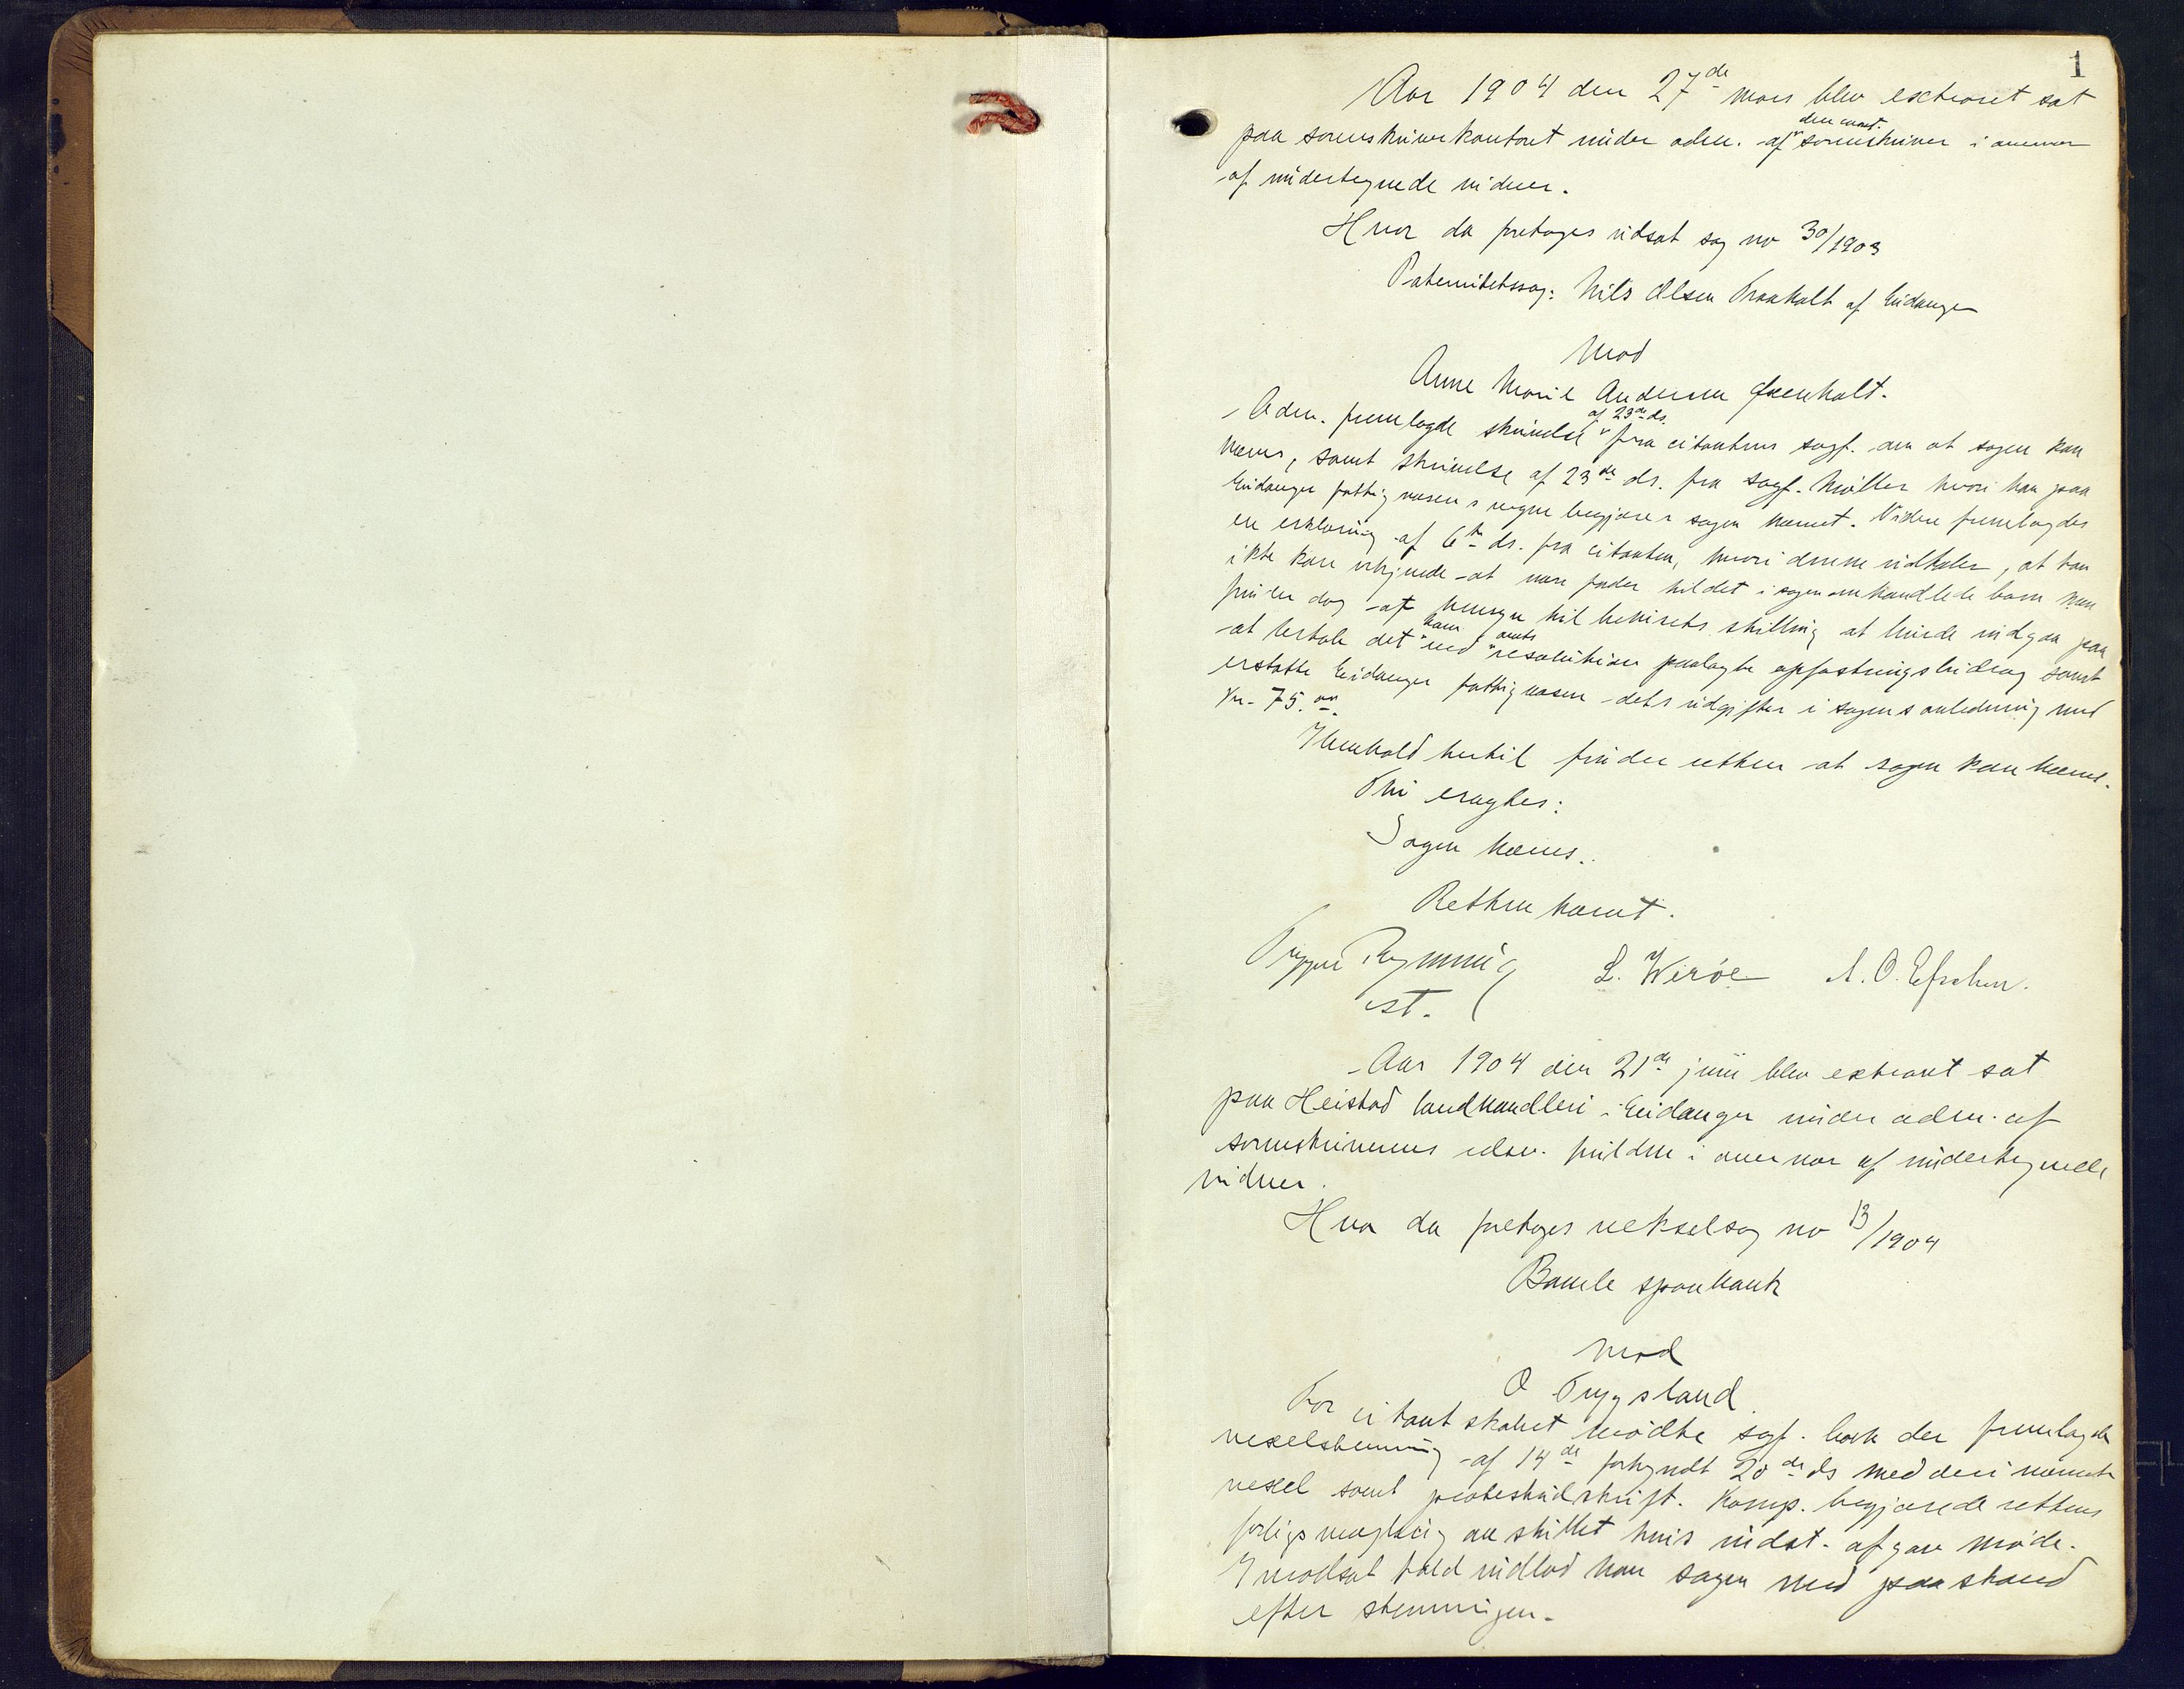 1
Aar 1904 den 27de mars blev extraret sat
paa sorenskriverkontoret under adm. af den const. sorenskriver i overvær
af undertegnede vidner.
Hvor da foretoges udsat sag no 30/1903
Paternitetssag: Nils Olsen Traaholt af Eidanger
mod
Anne Marie Andersen
Adm. fremlagde skrivelse af 23de ds. fra citantens sagf. om at sagen kan
hæves, samt skrivelse af 23de ds. fra sagf. Møller hvori han paa
Eidanger fattigvæsens vegne begjærer sagen hævet. Videre fremlagdes
en erklæring af 6te ds. fra citanten, hvori denne udtaler, at han
ikke kan vedkjende at være fader til det i sagen omhandlede barn men
finder dog af hensyn til bevisets stilling at burde indgaa paa
at betale det ham ved amts resolution paalagte opfostringsbidrag samt
erstatte Eidanger fattigvæsen dets udgifter i sagens anledning med
Kr. 75.00.
I henhold hertil finder retten at sagen kan hæves.
Thi eragtes:
Sagen hæves.
Retten hævet.
Trygve Rynning L. Wirøe A. O.
cst.
Aar 1904 den 21de juni blev extraret sat
paa Heistad landhandleri i Eidanger under adm. af
sorenskriverens edsv. fuldm. i overvær af undertegnede
vidner.
Hvor da foretoges vekselsag no 13/1904
Bamle sparebank
mod
O Trygsland.
For citantskabet mødte sagf. der fremlagde
vexelstevning af 14de forkyndt 20de ds med deri nævnte
vexel samt protestudskrift. Komp. begjærede rettens
forligsmægling anstillet hvis indst. afgav møde.
I modsat fald indlod han sagen med paastand
efter stevningen.